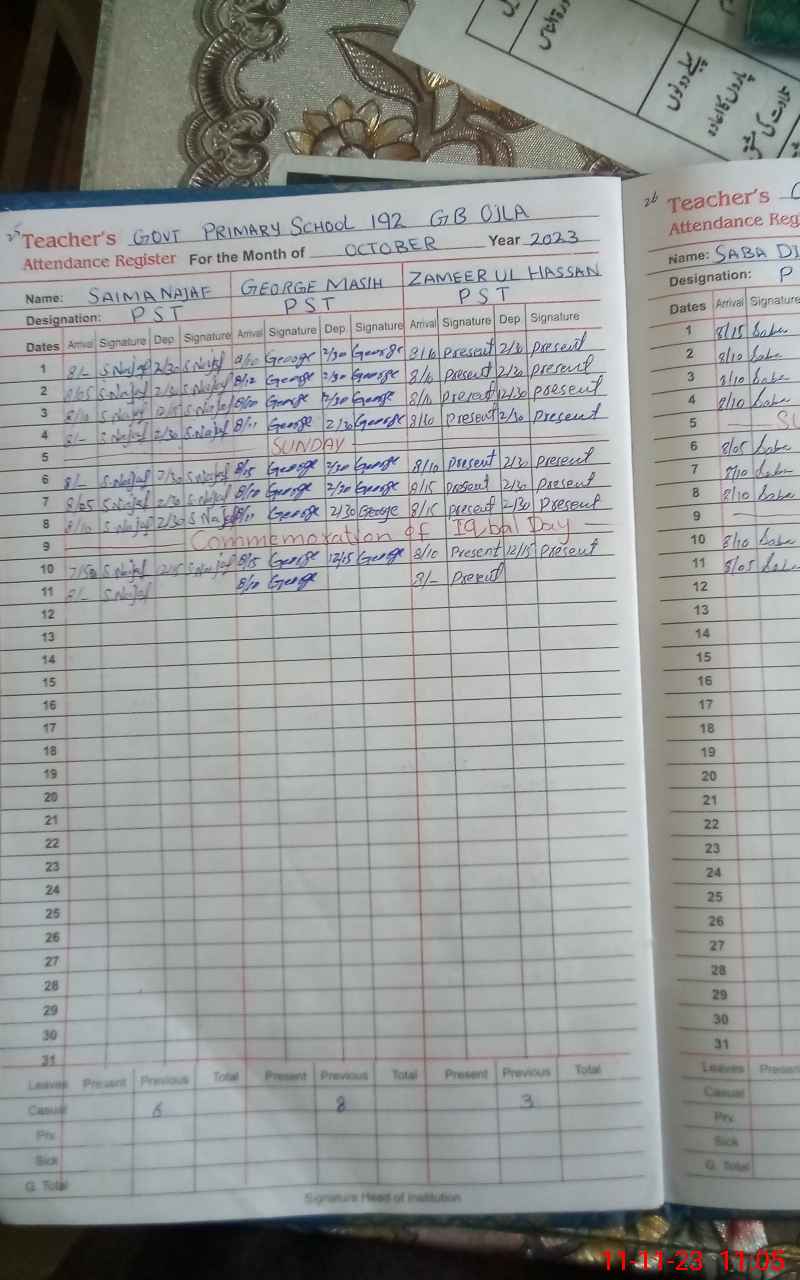 پہلے دونوں
پاروں کا اعادہ
25 Teacher's GOVT PRIMARY SCHOOL 192 GB OJLA
Attendance Register For the Month of OCTOBER Year 2023
Name: SAIMA NAJAF GEORGE MASIH ZAMEER UL HASSAN
Designation: PST PST PST
Dates Arrival Signature Dep Signature Arrival Signature Dep. Signature Arrival Signature Dep Signature
1 8/- S Najaf 2/30 S Najaf 8/10 George 2/30 George 8/10 Present 2/30 Present
2 8/05 S Najaf 2/30 S Najaf 8/12 George 2/30 George 8/10 Present 2/30 Present
3 8/10 S Najaf 12/15 S Najaf 8/10 George 12/30 George 8/10 Present 12/30 present
4 8/- S Najaf 2/30 S Najaf 8/11 George 2/30 George 8/10 Present 2/30 Present
5 SUNDAY
6 8/- S Najaf 2/30 S Najaf 8/15 George 2/30 George 8/10 Present 2/30 Present
7 8/05 S Najaf 2/30 S Najaf 8/10 George 2/30 George 8/15 Present 2/30 Present
8 8/10 S Najaf 2/30 S Najaf 8/11 George 2/30 George 8/15 Present 2/30 Present
9 Commemoration of Iqbal Day
10 7/58 S Najaf 12/15 S Najaf 8/15 George 12/15 George 8/10 Present 12/15 Present
11 8/- S Najaf 8/10 George 8/- Present
12
13
14
15
16
17
18
19
20
21
22
23
24
25
26
27
28
29
30
31
Leaves Present Previous Total Present Previous Total Present Previous Total
Casual 6 8 3
Prv.
Sick
G. Total
Signature Head of Institution
26 Teacher's
Attendance Reg
Name: SABA DI
Designation: P
Dates Arrival Signature
1 8/15 Saba
2 8/10 Saba
3 8/10 Saba
4 8/10 Saba
5 SU
6 8/05 Saba
7 8/10 Saba
8 8/10 Saba
9
10 8/10 Saba
11 8/05 Saba
12
13
14
15
16
17
18
19
20
21
22
23
24
25
26
27
28
29
30
31
Leaves Present
Casual
Prv.
Sick
G. Total
11-11-23 11:05